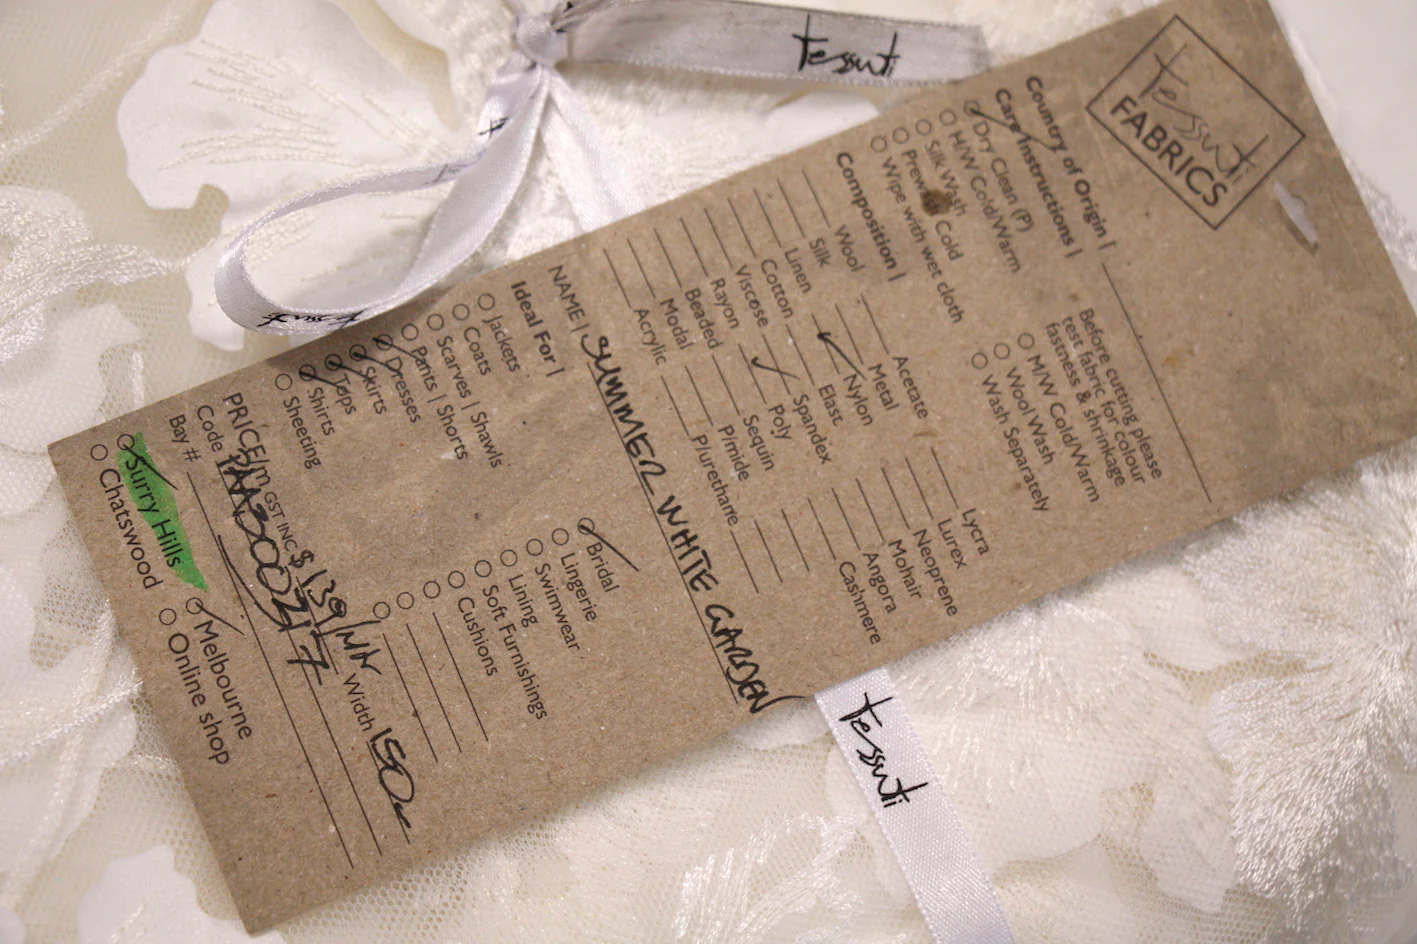 tessuti
tessuti
FABRICS
Country of Origin |
Care Instructions |
Dry Clean (P)
H/W Cold/Warm
Silk Wash
Cold
Wipe with wet cloth
Before cutting please
test fabric for colour
fastness & shrinkage
M/W Cold/Warm
Wool Wash
Wash Separately
Composition |
Wool
Silk
Linen
Cotton
Viscose
Rayon
Beaded
Modal
Acrylic
Acetate
Metal
Nylon
Elast
Spandex
Poly
Sequin
P/mide
P/urethane
Lycra
Lurex
Neoprene
Mohair
Angora
Cashmere
NAME | SUMMER WHITE GARDEN
Ideal For |
Jackets
Coats
Scarves | Shawls
Pants | Shorts
Dresses
Skirts
Tops
Shirts
Sheeting
Bridal
Lingerie
Swimwear
Lining
Soft Furnishings
Cushions
PRICE/m GST INC $ 139 Width 150
Code
Bay #
Surry Hills
Chatswood
Melbourne
Online shop
tessuti